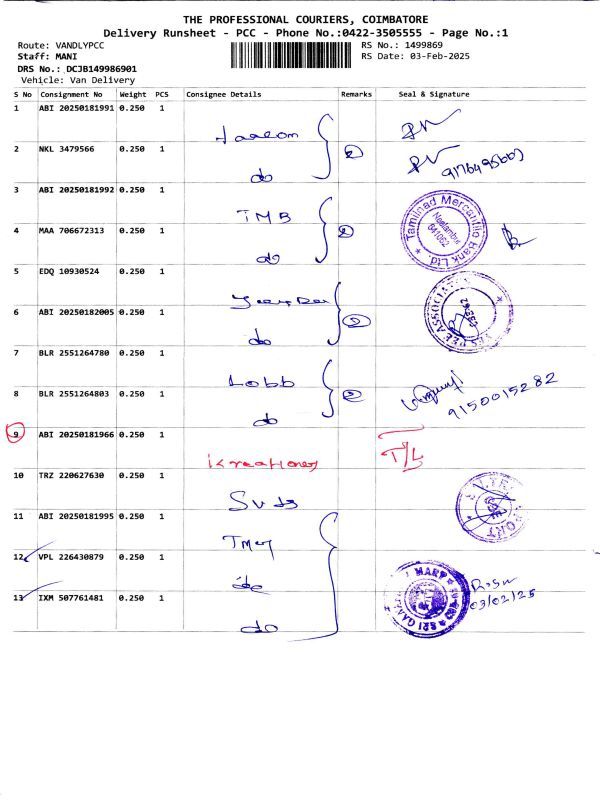 THE PROFESSIONAL COURIERS, COIMBATORE
Delivery Runsheet - PCC - Phone No.:0422-3505555 - Page No.:1
Route: VANDLYPCC
RS No.: 1499869
Staff: MANI
RS Date: 03-Feb-2025
DRS No.: DCJB149986901
Vehicle: Van Delivery
S No Consignment No Weight PCS Consignee Details Remarks Seal & Signature
1 ABI 20250181991 0.250 1
2 NKL 3479566 0.250 1
do 2
3 ABI 20250181992 0.250 1
TMB
4 MAA 706672313 0.250 1
do 2
Tamilnad Mercantile Bank Ltd.
Neelambur
641062
5 EDQ 10930524 0.250 1
6 ABI 20250182005 0.250 1
do 2
7 BLR 2551264780 0.250 1
Lobb
8 BLR 2551264803 0.250 1
do 2
9150015282
9 ABI 20250181966 0.250 1
T/L
10 TRZ 220627630 0.250 1
11 ABI 20250181995 0.250 1
12 VPL 226430879 0.250 1
do
13 IXM 507761481 0.250 1
do
03/02/25